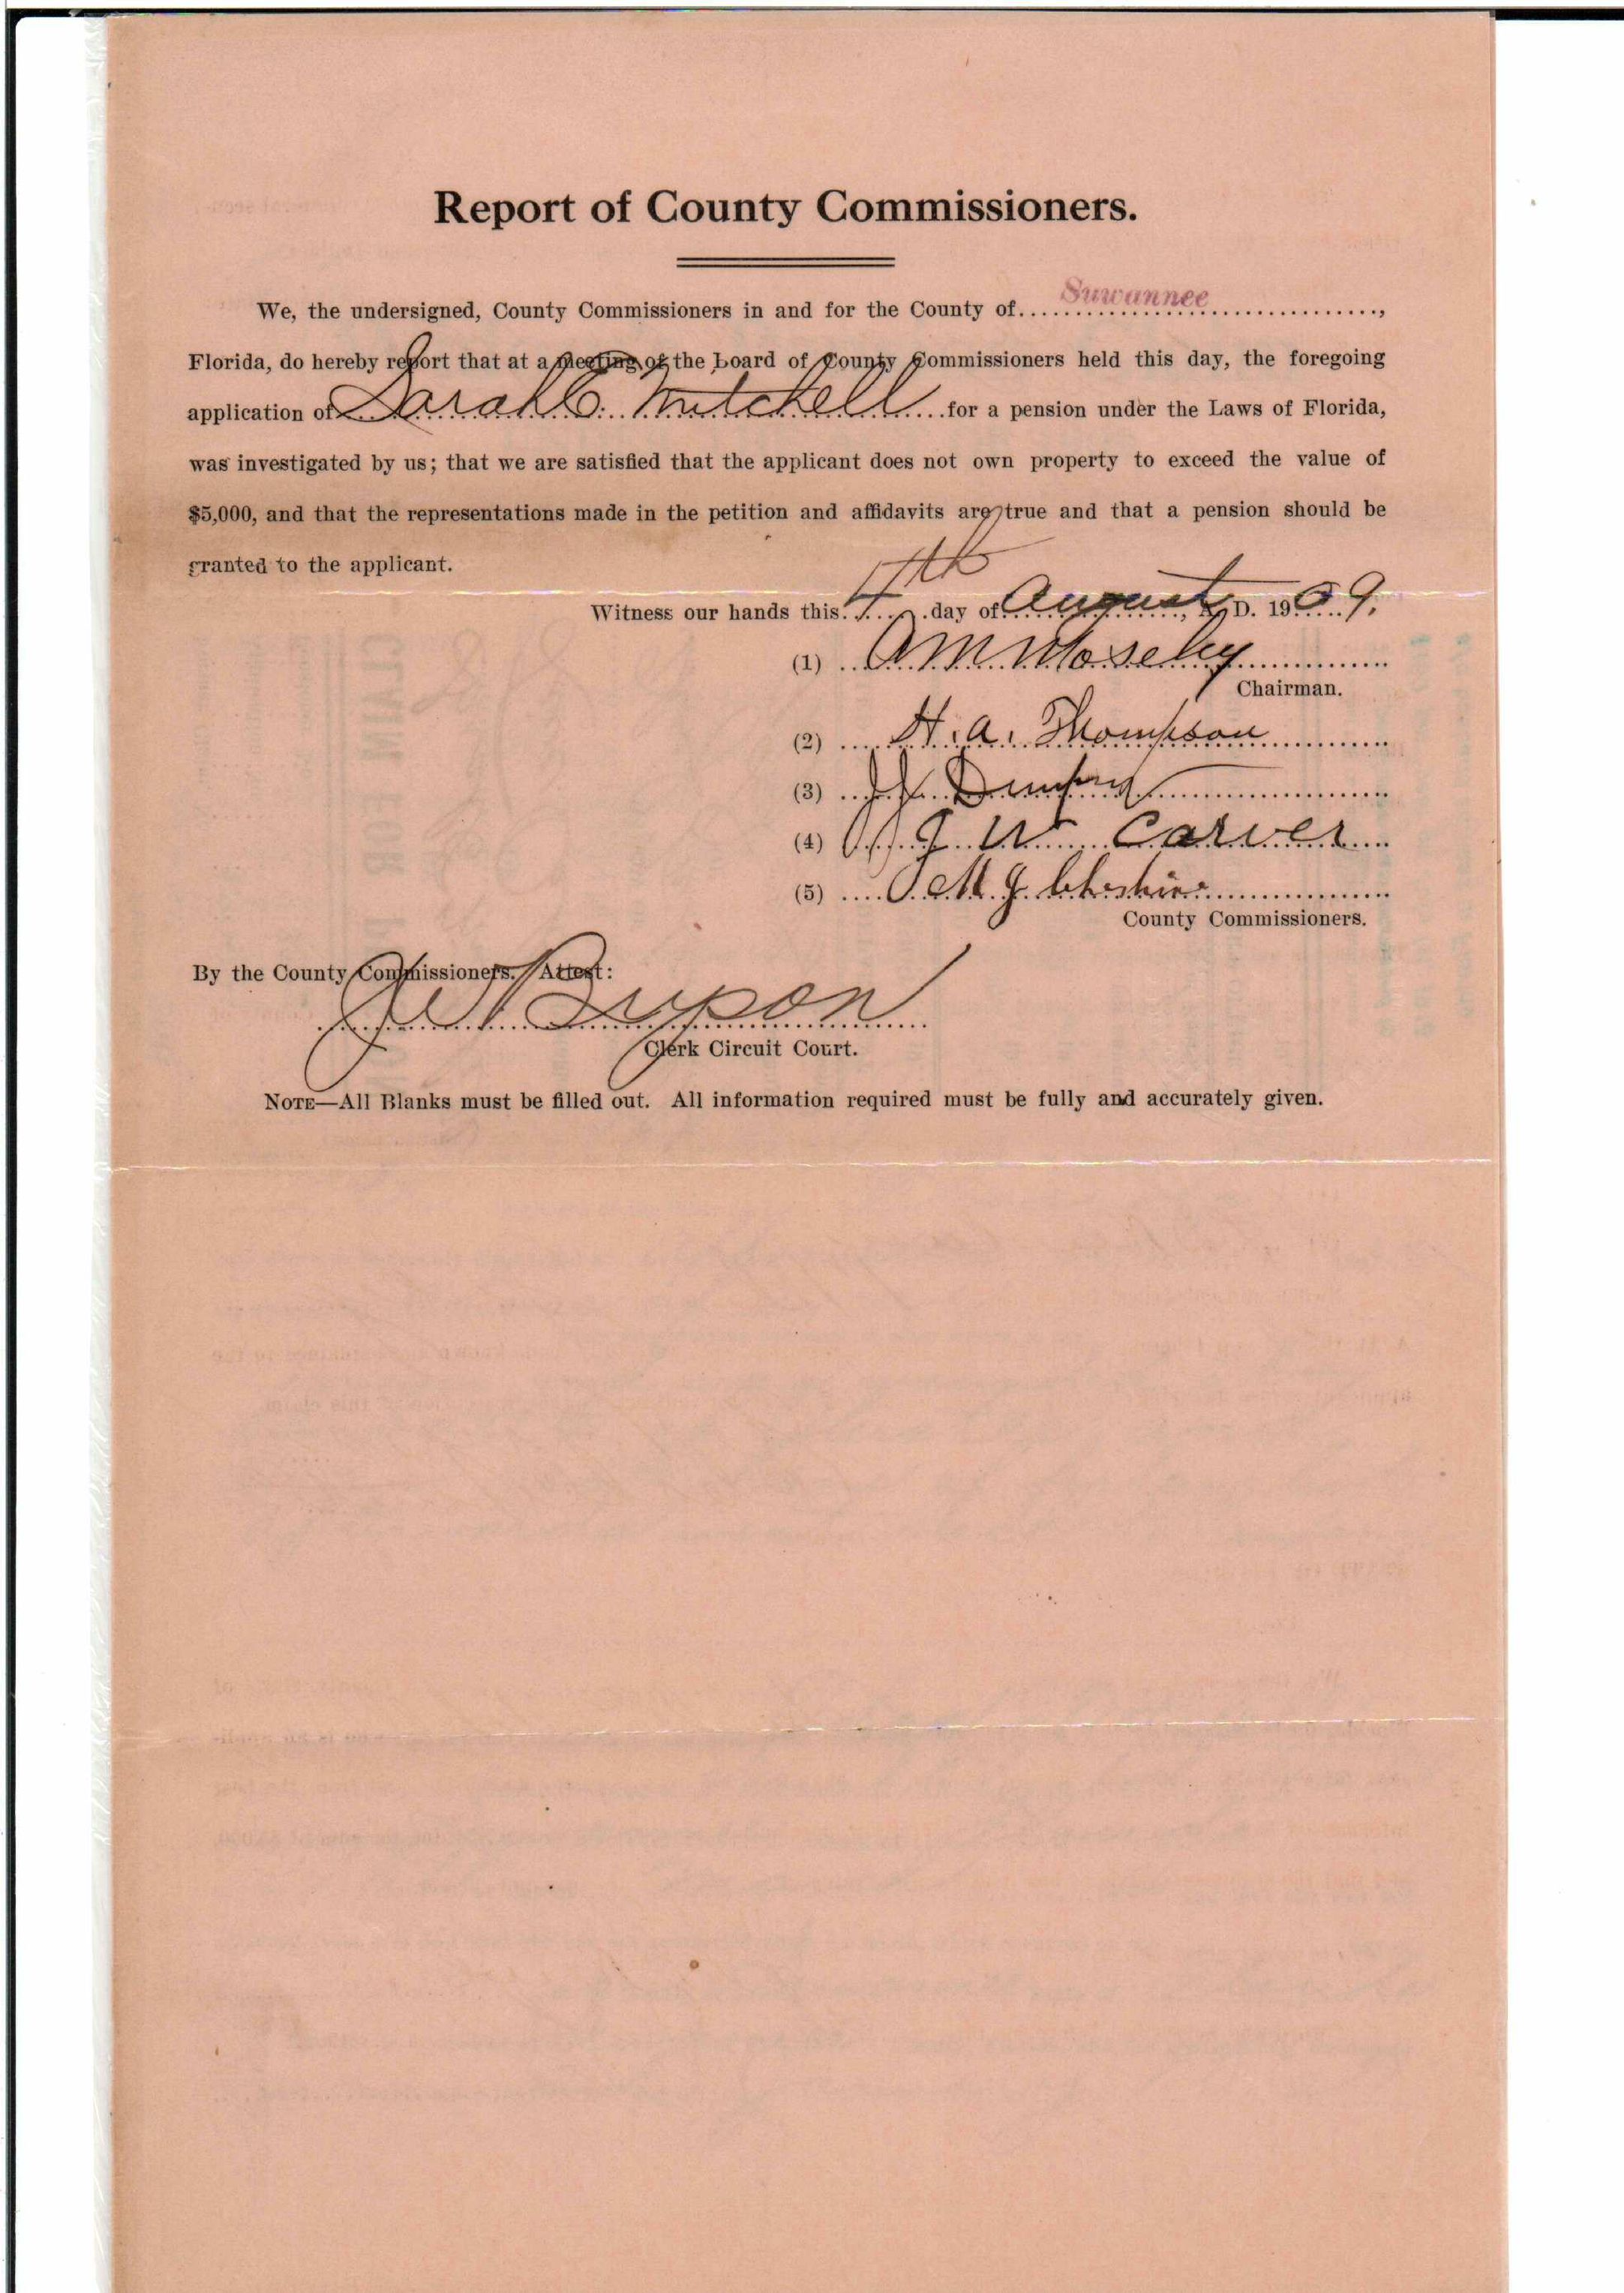 Report of County Commissioners.
We, the undersigned, County Commissioners in and for the County of Suwannee,
Florida, do hereby report that at a meeting of the Board of County Commissioners held this day, the foregoing
application of Sarah C. Mitchell for a pension under the Laws of Florida,
was investigated by us; that we are satisfied that the applicant does not own property to exceed the value of
$5,000, and that the representations made in the petition and affidavits are true and that a pension should be
granted to the applicant.
Witness our hands this 4th day of August, A. D. 1909.
(1) A M Moseley
Chairman.
(2) H. A. Thompson
(3) J J
(4) J W Carver
(5) M J Cheshire
County Commissioners.
By the County Commissioners. Attest:
J W Bryson
Clerk Circuit Court.
NOTE—All Blanks must be filled out. All information required must be fully and accurately given.